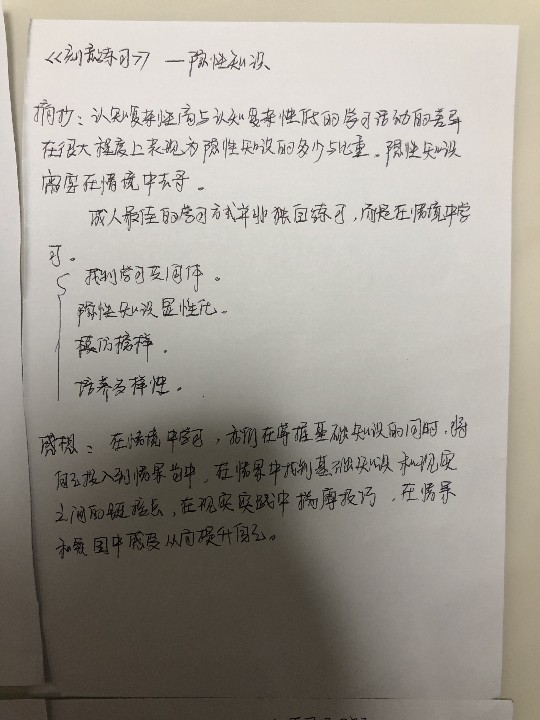 《刻意练习》 — 隐性知识
摘抄：认知复杂性高与认知复杂性低的学习活动的差异
在很大程度上表现为隐性知识的多少与比重。隐性知识
需要在情境中去寻。
成人最佳的学习方式并非独自练习，而是在情境中学
习。
找到学习共同体。
隐性知识显性化。
模仿榜样。
培养多样性。
感想：在情境中学习，我们在掌握基础知识的同时，将
自己投入到情景当中，在情景中找到基础知识和现实
之间的链接点，在现实实践中揣摩技巧，在情景
和氛围中感受从而提升自己。